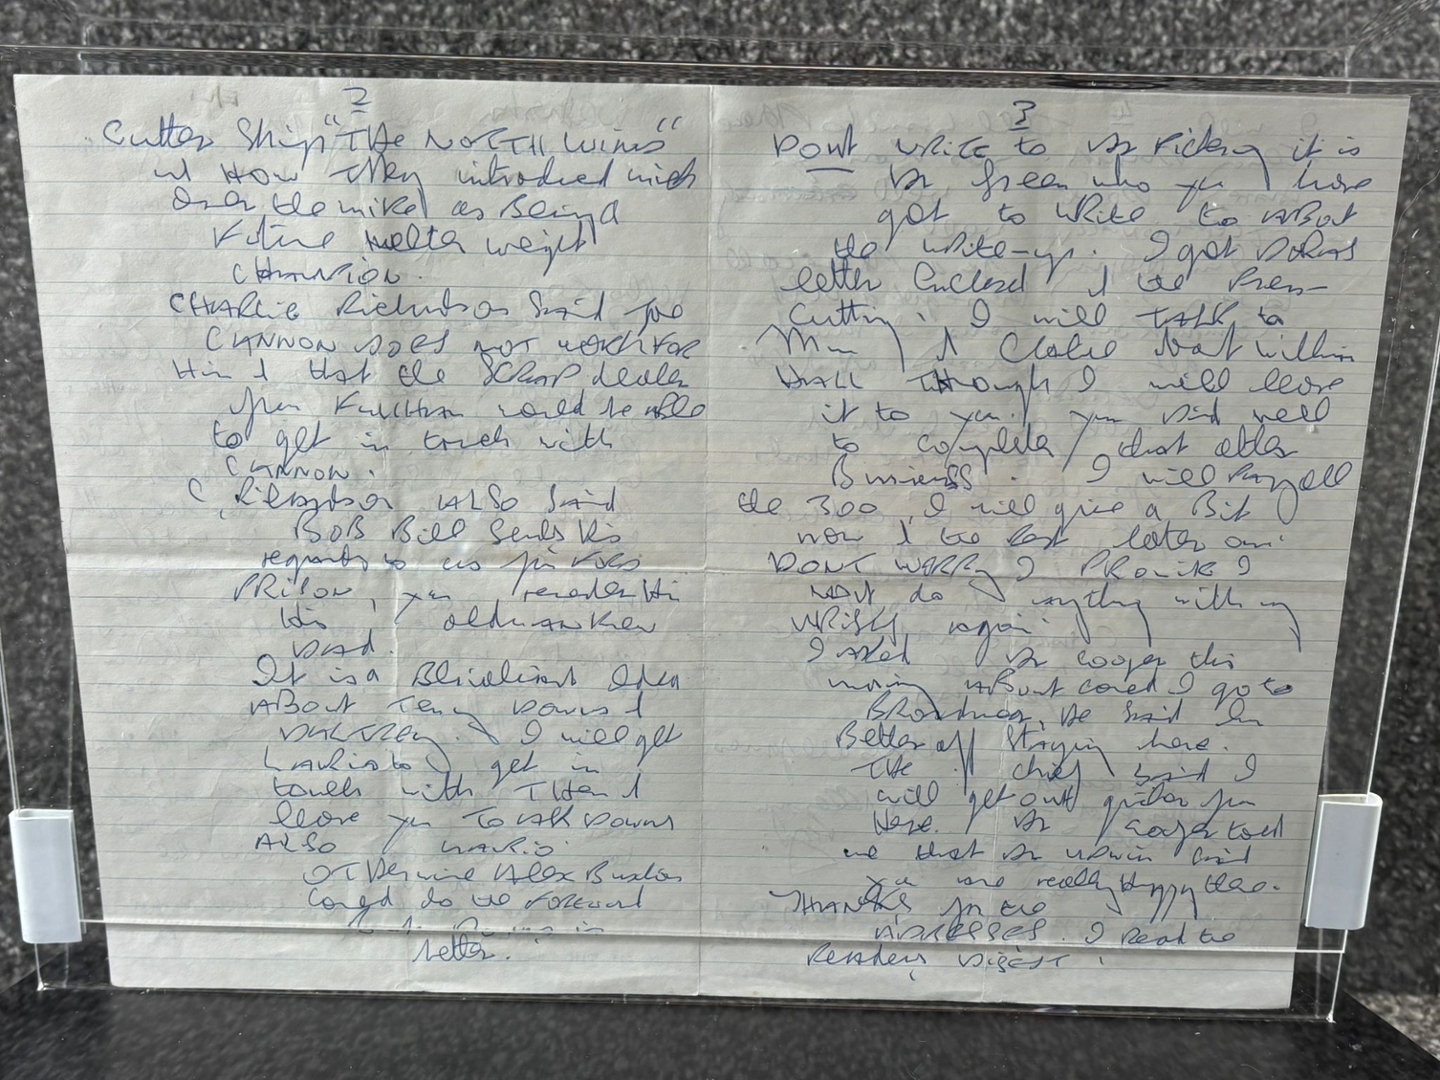 2
Cutter Ship "THE NORTH WIND"
+ HOW THEY introduced
over the mike as Being a
Future welter weight
CHAMPION.
CHARLIE Richardson Said Joe
CANNON DOES NOT WORK FOR
Him & that the SCRAP dealer
from FULHAM would be able
to get in touch with
CANNON.
C. Richardson ALSO Said
BOB Bill Sends his
regards to us from
PRISON, you remember Him
His old man
DEAD.
It is a Brilliant Idea
ABOUT Terry Downs &
I will get
to get in
touch with THEM &
leave you TO talk Downs
ALSO
OTHERwise Alex Buxton
could do the FOREword
in
letter.
3
DONT WRITE to Dr Pickering it is
Dr who you have
got to write to ABOUT
the write-up. I got
letter Enclosed & the Press-
Cutting. I will TALK to
& Charlie
THOUGH I will leave
it to you. you did well
to complete that other
Business. I will Pay all
the 300, I will give a Bit
now & the Rest later on.
DONT WORRY I PROMISE I
WONT do anything with my
WRISTS again.
I asked Dr Cooper this
morning ABOUT could I go to
BROADMOOR, he Said Im
Better off Staying here.
THE chief Said I
will get out quicker from
Here. Dr Cooper told
me that Dr said
you are really Happy there.
THANKS for the
ADDRESSES. I Read the
READERS DIGEST.